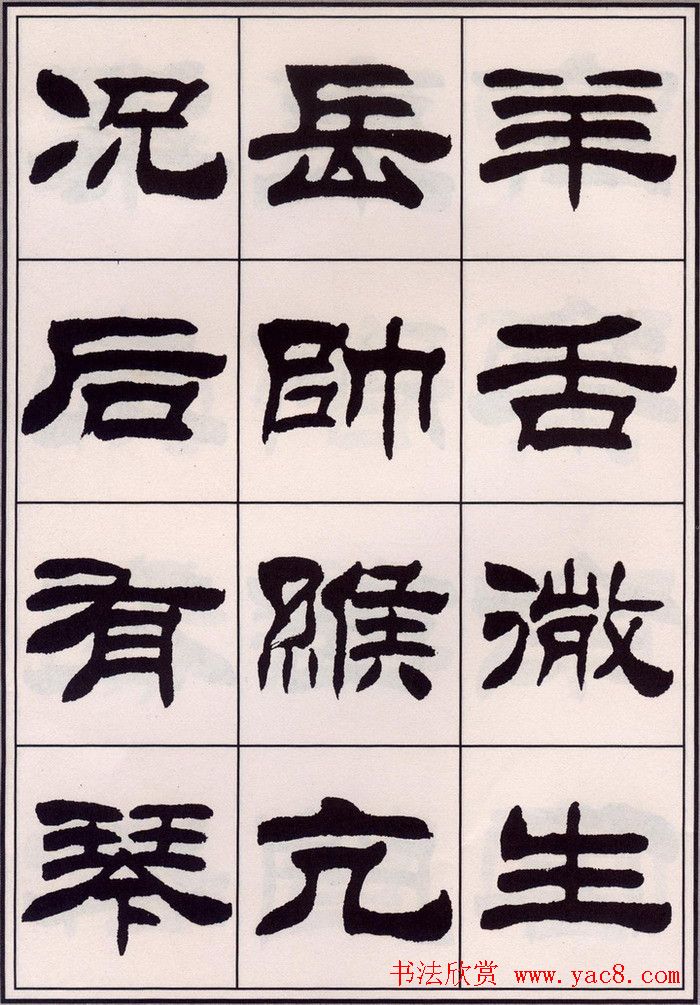 羊舌微生
岳帥緱亢
况后有琴
书法欣赏 www.yac8.com